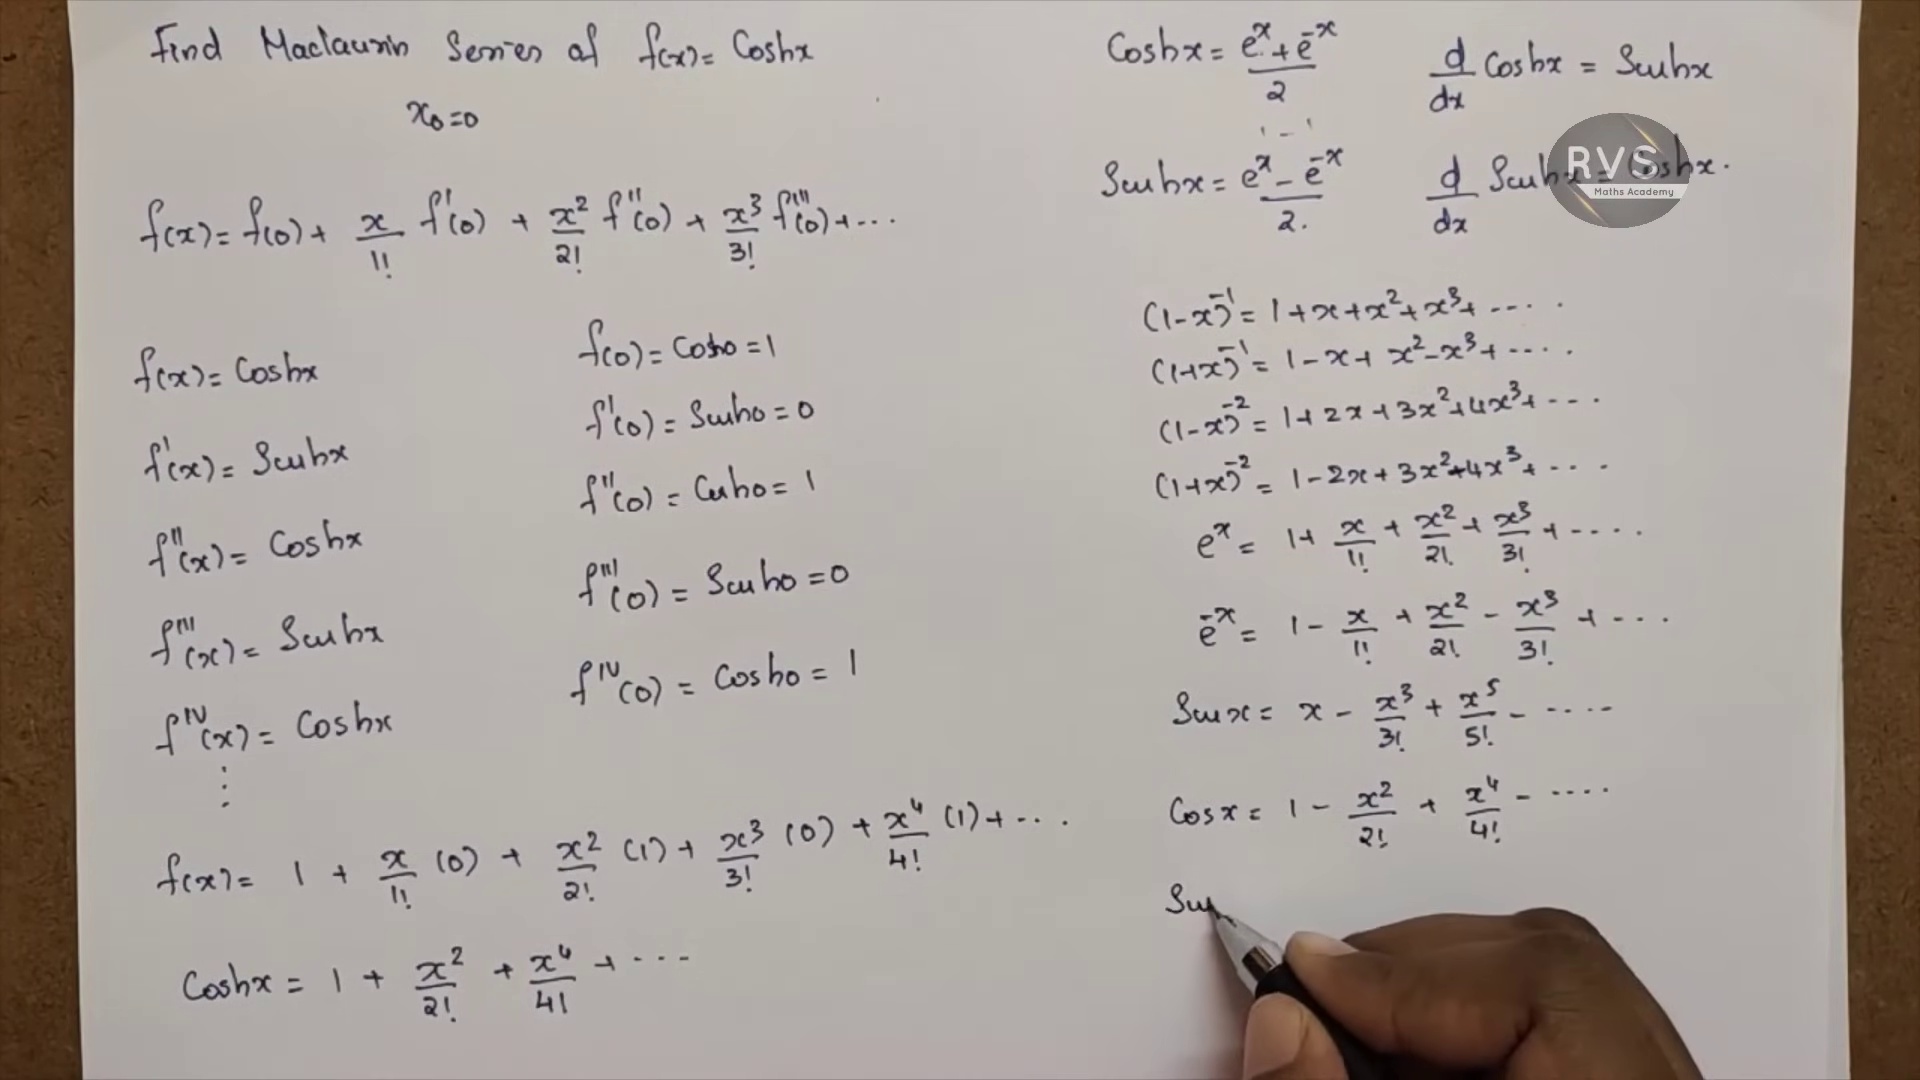 Find Maclaurin Series of f(x) = Coshx
x₀=0
f(x) = f(0) + x/1! f'(0) + x²/2! f''(0) + x³/3! f'''(0) + ...
f(x) = Coshx
f(0) = Cosh0 = 1
f'(x) = Sinhx
f'(0) = Sinh0 = 0
f''(x) = Coshx
f''(0) = Cosh0 = 1
f'''(x) = Sinhx
f'''(0) = Sinh0 = 0
f^IV(x) = Coshx
f^IV(0) = Cosh0 = 1
⋮
f(x) = 1 + x/1! (0) + x²/2! (1) + x³/3! (0) + x⁴/4! (1) + ...
Coshx = 1 + x²/2! + x⁴/4! + ...
Coshx = (e^x + e^-x)/2
d/dx Coshx = Sinhx
Sinhx = (e^x - e^-x)/2.
d/dx Sinhx = Coshx.
RVS
Maths Academy
(1-x)^-1 = 1+x+x²+x³+ .....
(1+x)^-1 = 1-x+x²-x³+ .....
(1-x)^-2 = 1+2x+3x²+4x³+ ...
(1+x)^-2 = 1-2x+3x²-4x³+ ....
e^x = 1+ x/1! + x²/2! + x³/3! + .....
e^-x = 1 - x/1! + x²/2! - x³/3! + ....
Sinx = x - x³/3! + x⁵/5! - .....
Cosx = 1 - x²/2! + x⁴/4! - .....
Sin